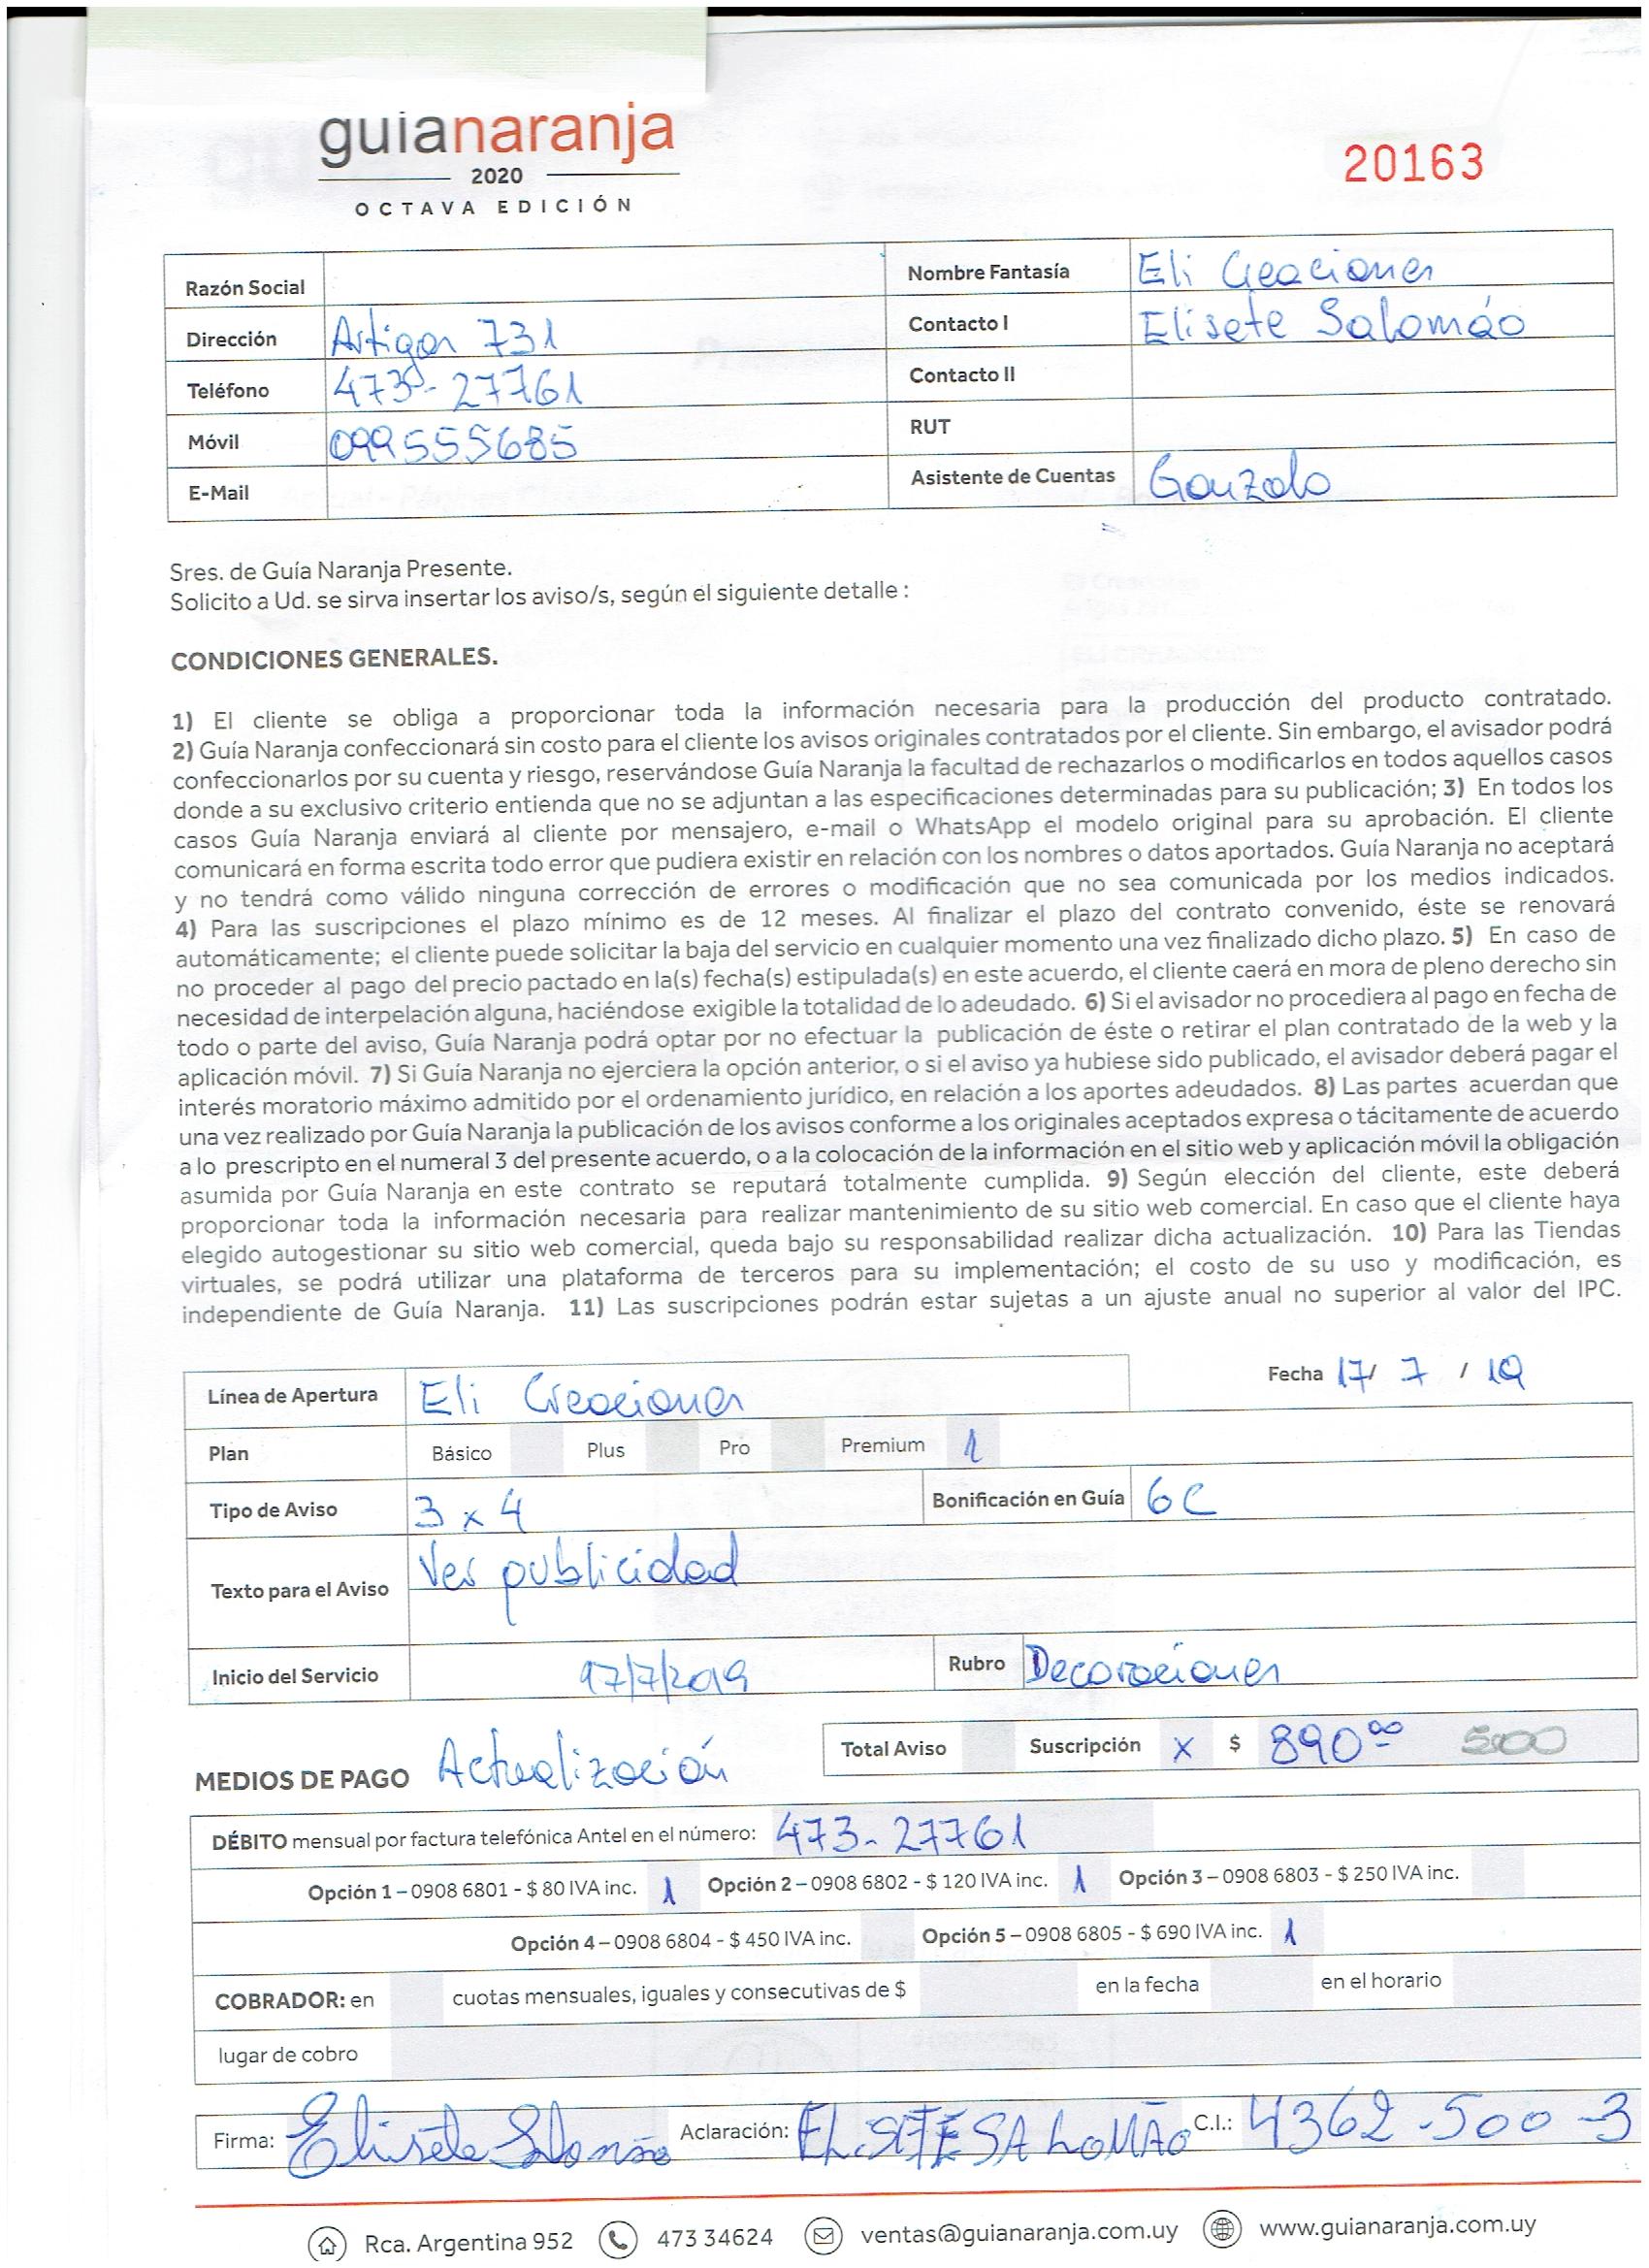 guianaranja
2020
OCTAVA EDICIÓN
20163
Razón Social
Nombre Fantasía Eli Creaciones
Dirección Artigas 731
Contacto I Elisete Salomáo
Teléfono 473-27761
Contacto II
Móvil 099555685
RUT
E-Mail
Asistente de Cuentas Gonzalo
Sres. de Guía Naranja Presente.
Solicito a Ud. se sirva insertar los aviso/s, según el siguiente detalle :
CONDICIONES GENERALES.
1) El cliente se obliga a proporcionar toda la información necesaria para la producción del producto contratado.
2) Guía Naranja confeccionará sin costo para el cliente los avisos originales contratados por el cliente. Sin embargo, el avisador podrá
confeccionarlos por su cuenta y riesgo, reservándose Guía Naranja la facultad de rechazarlos o modificarlos en todos aquellos casos
donde a su exclusivo criterio entienda que no se adjuntan a las especificaciones determinadas para su publicación; 3) En todos los
casos Guía Naranja enviará al cliente por mensajero, e-mail o WhatsApp el modelo original para su aprobación. El cliente
comunicará en forma escrita todo error que pudiera existir en relación con los nombres o datos aportados. Guía Naranja no aceptará
y no tendrá como válido ninguna corrección de errores o modificación que no sea comunicada por los medios indicados.
4) Para las suscripciones el plazo mínimo es de 12 meses. Al finalizar el plazo del contrato convenido, éste se renovará
automáticamente; el cliente puede solicitar la baja del servicio en cualquier momento una vez finalizado dicho plazo. 5) En caso de
no proceder al pago del precio pactado en la(s) fecha(s) estipulada(s) en este acuerdo, el cliente caerá en mora de pleno derecho sin
necesidad de interpelación alguna, haciéndose exigible la totalidad de lo adeudado. 6) Si el avisador no procediera al pago en fecha de
todo o parte del aviso, Guía Naranja podrá optar por no efectuar la publicación de éste o retirar el plan contratado de la web y la
aplicación móvil. 7) Si Guía Naranja no ejerciera la opción anterior, o si el aviso ya hubiese sido publicado, el avisador deberá pagar el
interés moratorio máximo admitido por el ordenamiento jurídico, en relación a los aportes adeudados. 8) Las partes acuerdan que
una vez realizado por Guía Naranja la publicación de los avisos conforme a los originales aceptados expresa o tácitamente de acuerdo
a lo prescripto en el numeral 3 del presente acuerdo, o a la colocación de la información en el sitio web y aplicación móvil la obligación
asumida por Guía Naranja en este contrato se reputará totalmente cumplida. 9) Según elección del cliente, este deberá
proporcionar toda la información necesaria para realizar mantenimiento de su sitio web comercial. En caso que el cliente haya
elegido autogestionar su sitio web comercial, queda bajo su responsabilidad realizar dicha actualización. 10) Para las Tiendas
virtuales, se podrá utilizar una plataforma de terceros para su implementación; el costo de su uso y modificación, es
independiente de Guía Naranja. 11) Las suscripciones podrán estar sujetas a un ajuste anual no superior al valor del IPC.
Línea de Apertura Eli Creaciones
Fecha 17/ 7 / 19
Plan Básico Plus Pro Premium 1
Tipo de Aviso 3 x 4 Bonificación en Guía 6C
Texto para el Aviso Ver publicidad
Inicio del Servicio 17/7/2019 Rubro Decoraciones
Total Aviso Suscripción x $ 890°° 500
MEDIOS DE PAGO Actualización
DÉBITO mensual por factura telefónica Antel en el número: 473-27761
Opción 1 – 0908 6801 - $ 80 IVA inc. 1 Opción 2 – 0908 6802 - $ 120 IVA inc. 1 Opción 3 – 0908 6803 - $ 250 IVA inc.
Opción 4 – 0908 6804 - $ 450 IVA inc. Opción 5 – 0908 6805 - $ 690 IVA inc. 1
COBRADOR: en cuotas mensuales, iguales y consecutivas de $ en la fecha en el horario
lugar de cobro
Firma: Elisete Salomão Aclaración: ELISETE SALOMÃO C.I.: 4362-500-3
Rca. Argentina 952 473 34624 ventas@guianaranja.com.uy www.guianaranja.com.uy